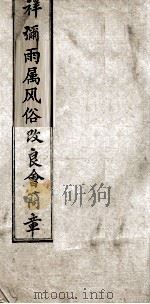 祥彌兩属风俗改良會簡章
mtoou.info